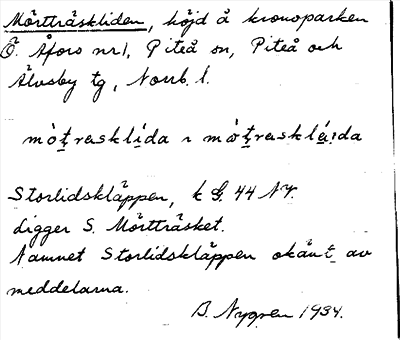 Mörtträskliden, höjd å kronoparken
Ö. Åfors nr 1, Piteå sn, Piteå och
Älvsby tg, Norrb. l.
Storlidskläppen, k G. 44 NV.
Ligger S. Mörtträsket.
Namnet Storlidskläppen okänt av
meddelarna.
B. Nygren 1934.